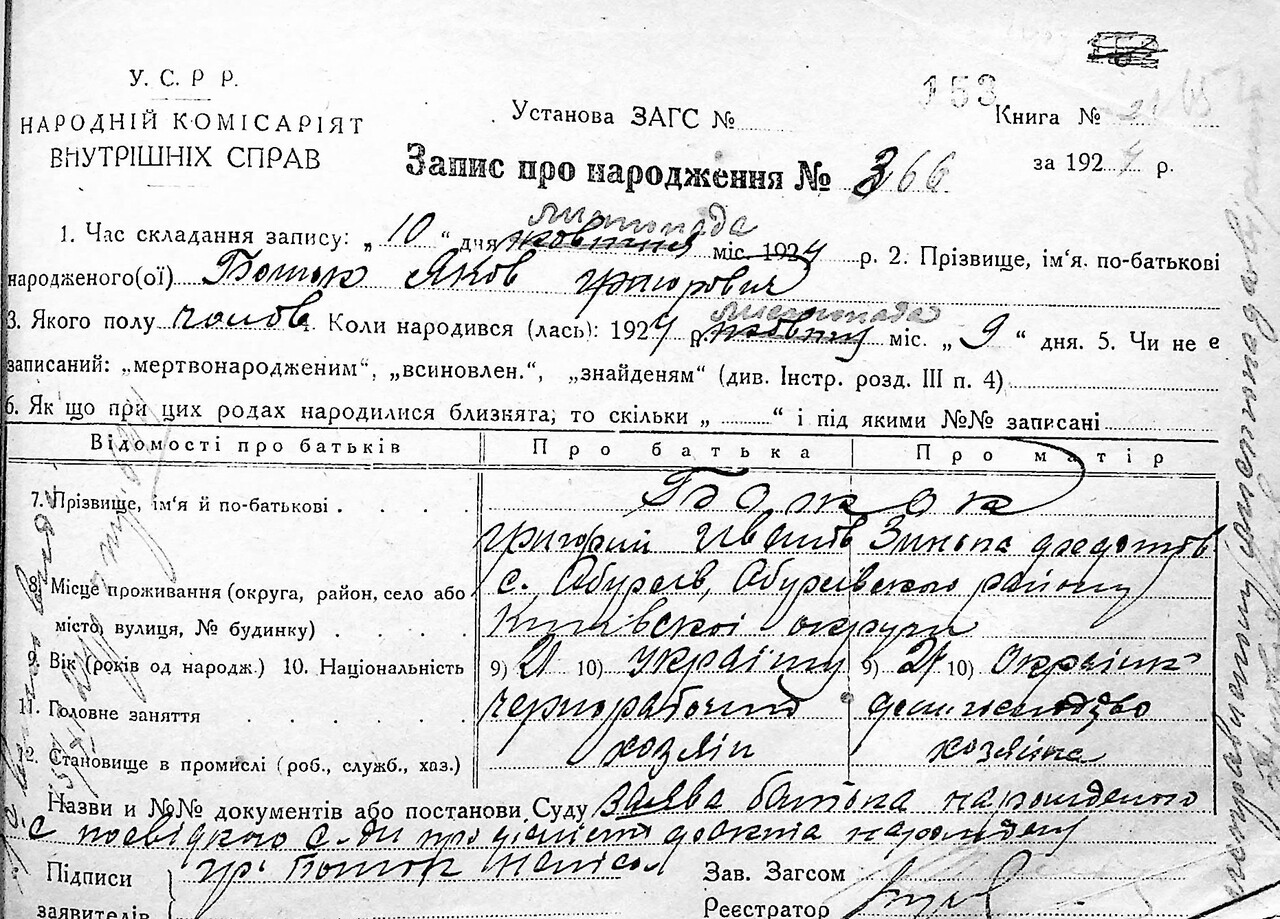 153
У. С. Р Р.
НАРОДНІЙ КОМІСАРІЯТ
ВНУТРІШНІХ СПРАВ
Установа ЗАГС №
Книга № 21
Запис про народження № 366
за 1924 р.
листопада
1. Час складання запису: „ 10 “ дня жовтня міс. 1924 р. 2. Прізвище, ім'я. по-батькові
народженого(ої) Яков Григорович
листопада
3. Якого полу чолов 4. Коли народився (лась): 1924 р. жовтня міс. „ 9 “ дня. 5. Чи не є
записаний: „мертвонародженим“, „всиновлен.“, „знайденям“ (див. Інстр. розд. III п. 4)
6. Як що при цих родах народилися близнята; то скільки „ “ і під якими №№ записані
Відомості про батьків Про батька Про матір
7. Прізвище, ім'я й по-батькові
Григорий Иванов Зинька Федотов
8. Місце проживання (округа, район, село або с. Обухів, Обухівского району
місто, вулиця, № будинку) Київскої округи
9. Вік (років од народж.) 10. Національність 9) 21 10) Українц 9) 21 10) Українк
11. Головне заняття чернорабочий дом. господство
12. Становище в промислі (роб., служб., хаз.) хозяїн хозяйка
Назви и №№ документів або постанови Суду заява батька народженого
Підписи
заявителів
Зав. Загсом
Реєстратор